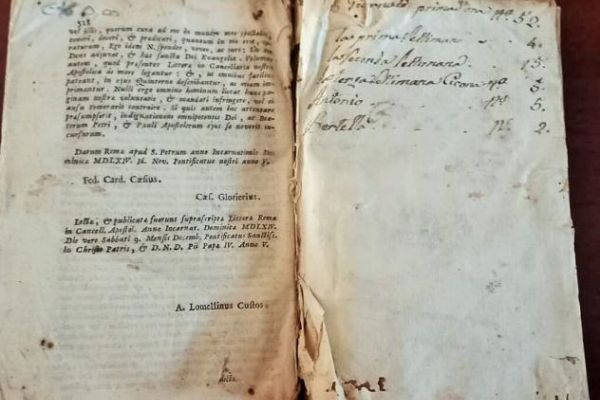 318
vel illis, quorum cura ad me in munere meo spectabit,
teneri, doceri, & prædicari, quantum in me erit, cu-
raturum, Ego idem N. spondeo, voveo, ac juro: Sic me
Deus adjuvet, & hæc sancta Dei Evangelia. Volumus
autem, quod præsentes Litteræ in Cancellaria nostra
Apostolica de more legantur: &, ut omnibus facilius
pateant, in ejus Quinterno describantur, ac etiam im-
primantur. Nulli ergo omnino hominum liceat hanc pa-
ginam nostræ voluntatis, & mandati infringere, vel ei
ausu temerario contraire. Si quis autem hoc attentare
præsumpserit, indignationem omnipotentis Dei, ac Bea-
torum Petri, & Pauli Apostolorum ejus se noverit in-
cursurum.
Datum Romæ apud S. Petrum anno Incarnationis Do-
minicæ MDLXIV. Id. Nov. Pontificatus nostri anno V.
Fed. Card. Cæsius.
Cæs. Glorierius.
Lectæ, & publicatæ fuerunt suprascriptæ Litteræ Romæ
in Cancell. Apostol. Anno Incarnat. Dominicæ MDLXIV.
Die vero Sabbati 9. Mensis Decemb. Pontificatus Sanctiss.
in Christo Patris, & D.N.D. Pii Papæ IV. Anno V.
A. Lomellinus Custos.
prima 52.
la prima settimana 4.
la seconda settimana 15.
settimana
Antonio 5.
2.